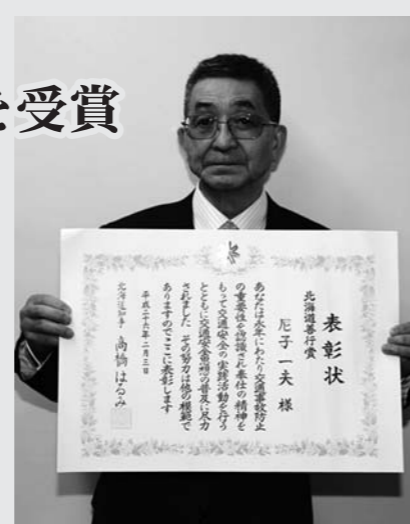 を受賞
表彰状
北海道善行賞
尾子一夫 様
あなたは永年にわたり交通事故防止
の重要性を認識され奉仕の精神を
もって交通安全の実践活動を行う
とともに交通安全思想の普及に尽力
されました その努力は他の模範で
ありますのでここに表彰します
平成二十六年二月三日
北海道知事 高橋はるみ